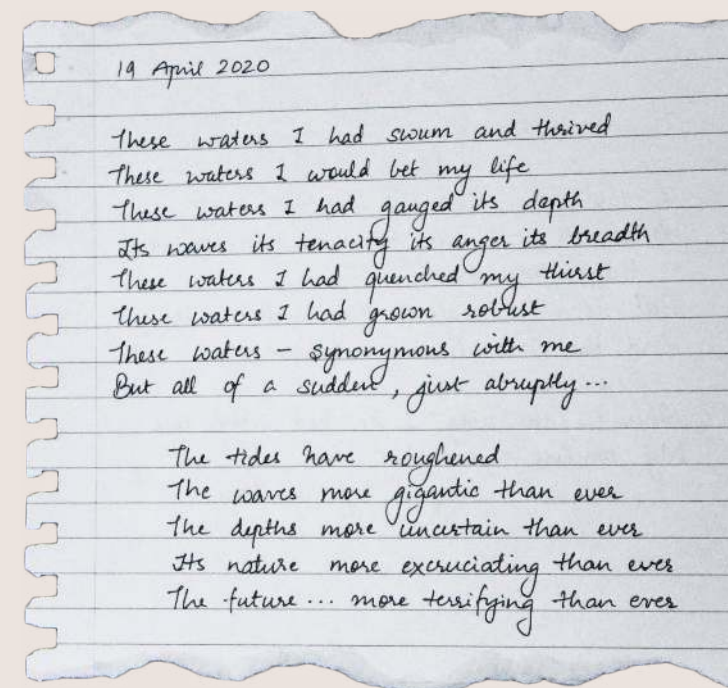 19 April 2020
These waters I had swum and thrived
These waters I would bet my life
These waters I had gauged its depth
Its waves its tenacity its anger its breadth
These waters I had quenched my thirst
These waters I had grown robust
These waters - synonymous with me
But all of a sudden, just abruptly...
The tides have roughened
The waves more gigantic than ever
The depths more uncertain than ever
Its nature more excruciating than ever
The future... more terrifying than ever